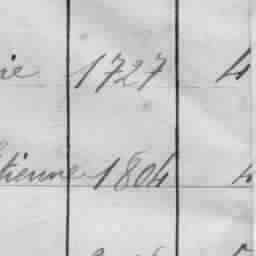 ie 1727 4
tienne 1804